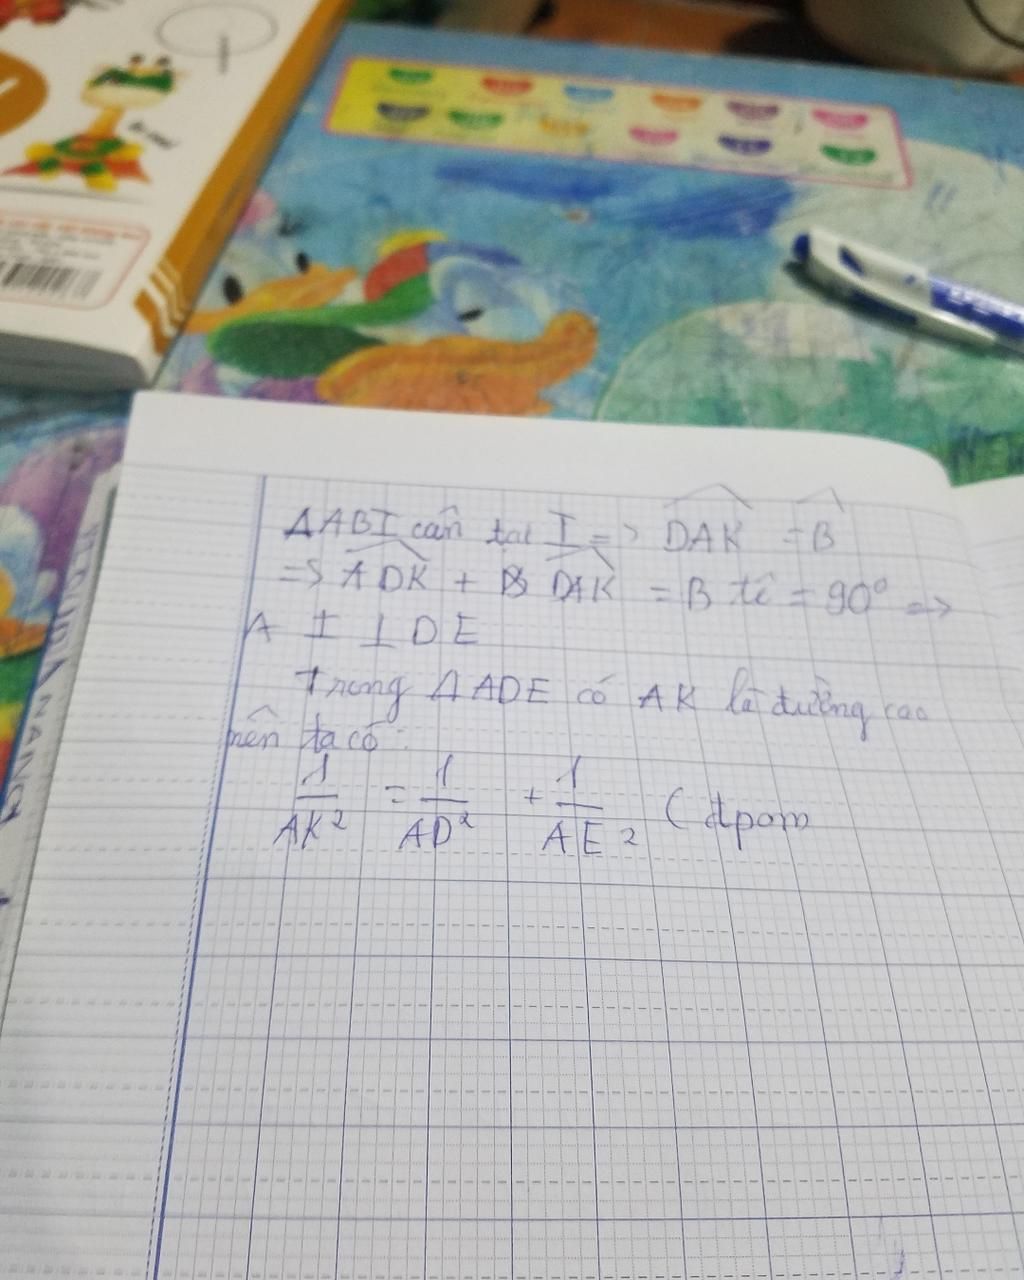 ΔABI cân tại I => DAK = B
=> ADK + DAK = B tê = 90° =>
A I ⊥ D E
Trong ΔADE có AK là đường cao
nên ta có :
1/AK² = 1/AD² + 1/AE² ( đpcm